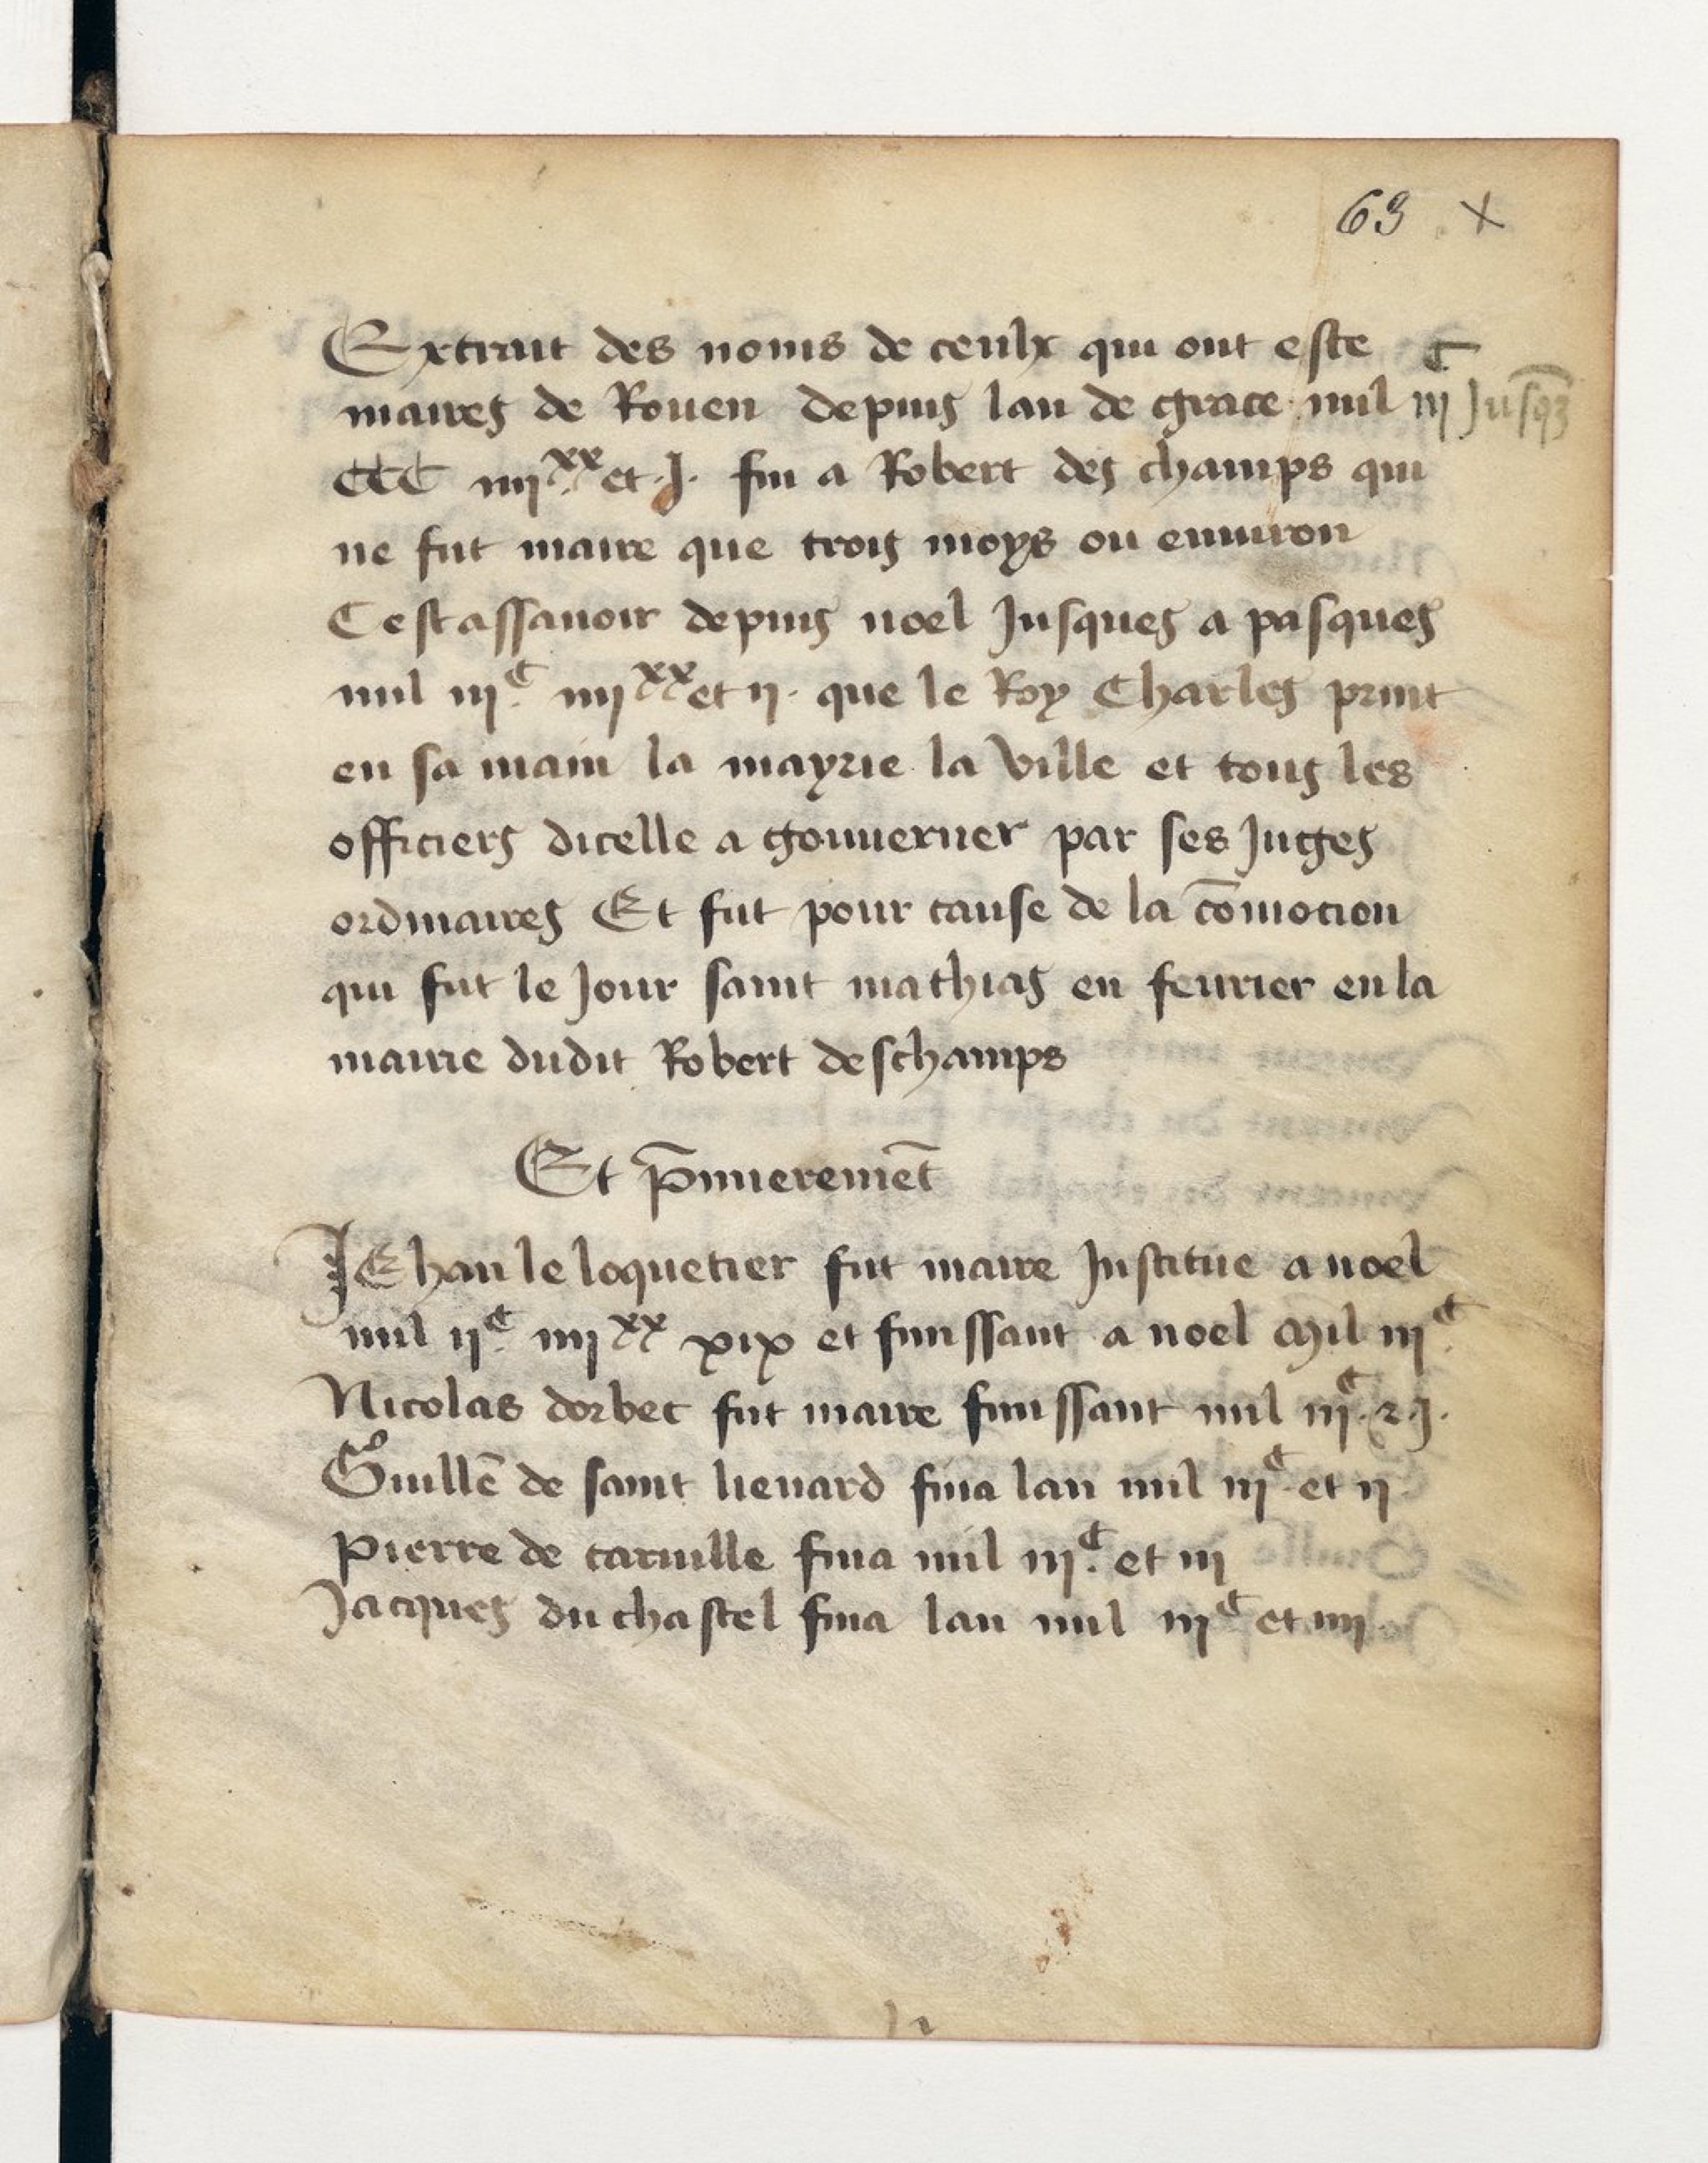 63 x
Extrait des noms de ceulx qui ont este
maires de Rouen depuis lan de grace mil iijC Jusqz
CCC iiijxx et .J. fin a Robert des champs qui
ne fut maire que trois moys ou enuiron
Cestassauoir depuis noel Jusques a pasques
mil iijC iiijxx et ij. que le Roy Charles print
en sa main la mayrie la ville et tous les
officiers dicelle a gouuerner par ses Juges
ordinaires Et fut pour cause de la cōmocion
qui fut le Jour saint mathias en feurier en la
mairie dudit Robert deschamps
Et p̄mieremēt
JEhan le loquetier fut maire Institue a noel
mil ijC iiijxx xix et finissant a noel Mil iijC
Nicolas dorbec fut maire finissant mil iijC. ⁊ .J.
Guillē de saint lienard fina lan mil iijC et ij
Pierre de caruille fina mil iijC. et iij
Jacques du chastel fina lan mil iijC et iiij